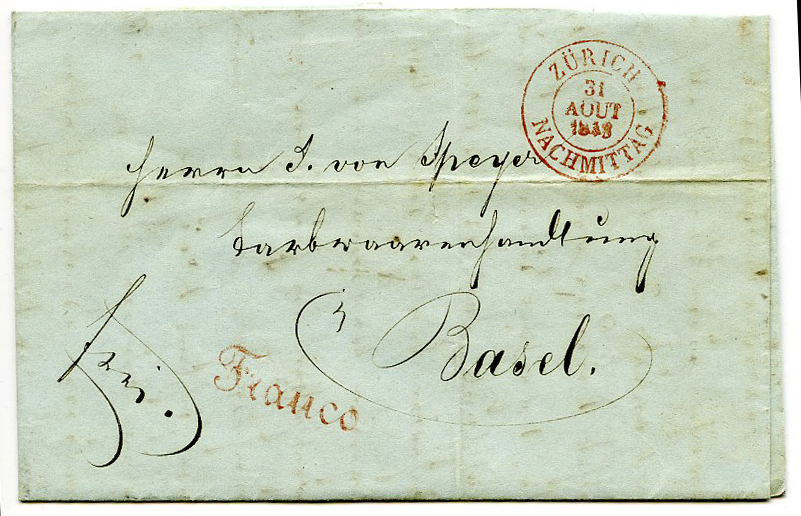 ZÜRICH
31
AOUT
NACHMITTAG
Herrn J. von Speyer
Farbwaarenhandlung
Basel.
frei.
Franco